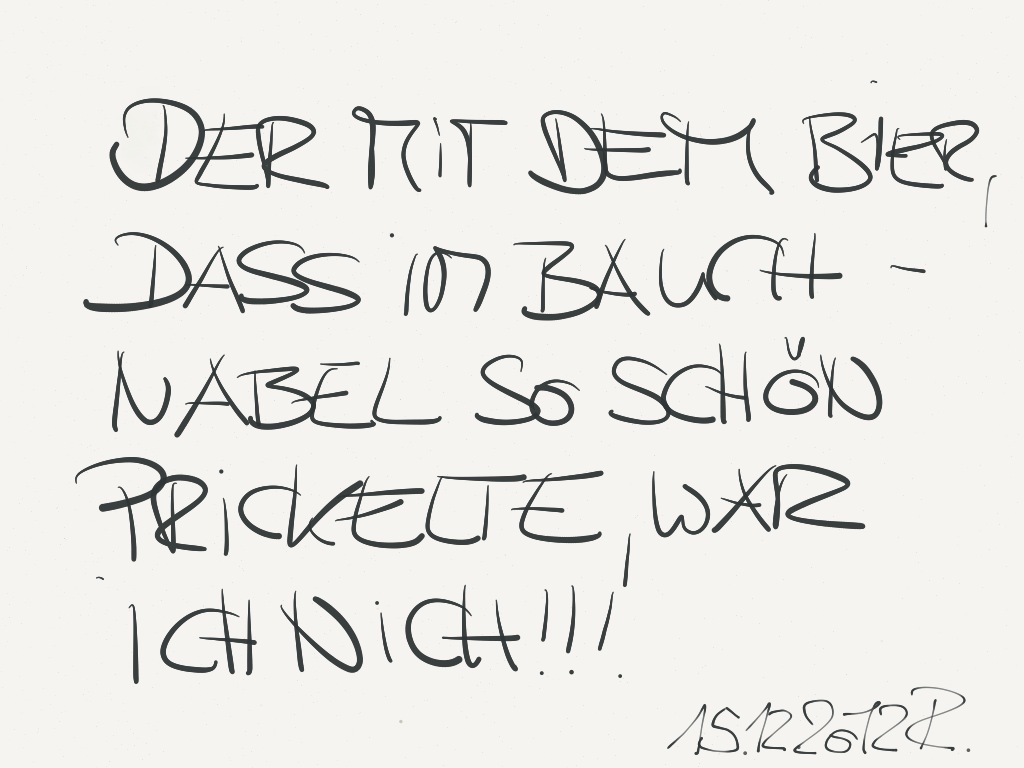 DER MiT DEM BIER,
DASS im BAUCH –
NABEL SO SCHÖN
PRiCKELTE, WAR
iCH NiCH!!!
15.12 2012 R.